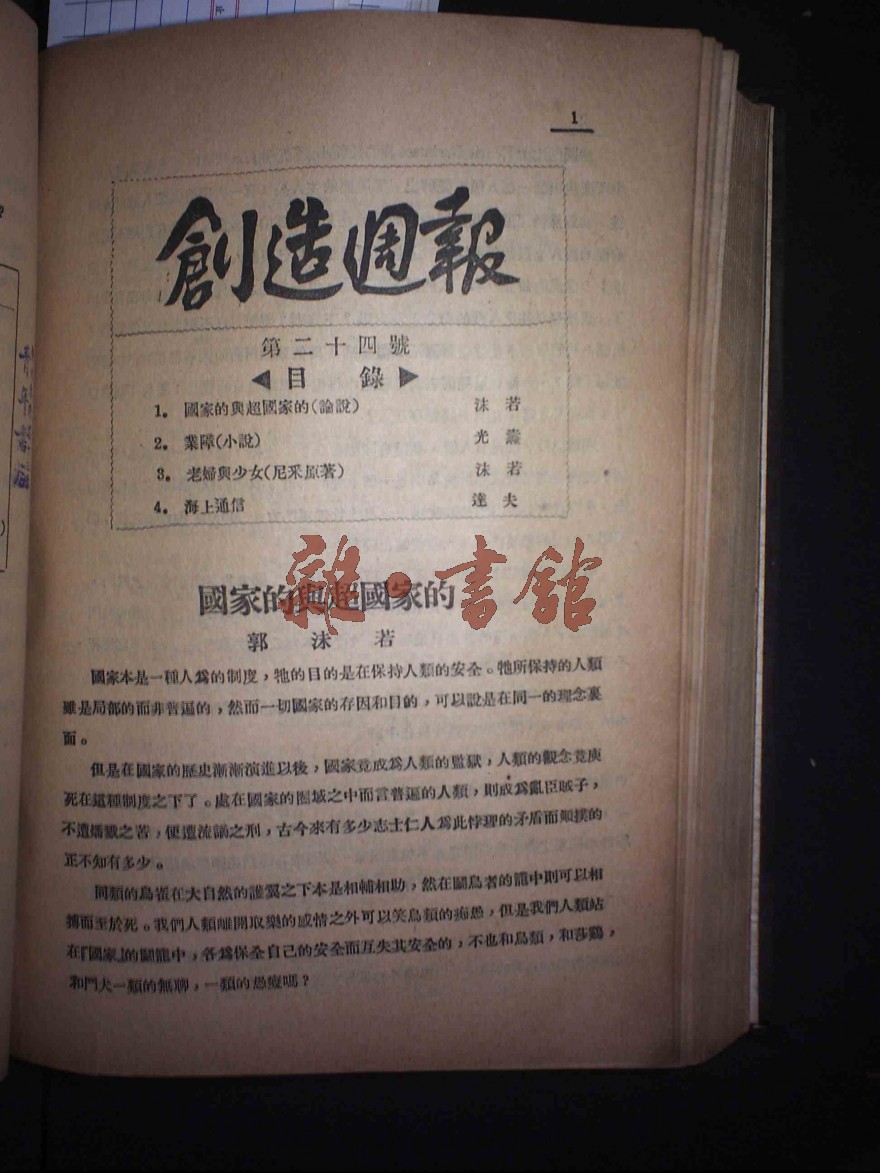 1
創造週報
第二十四號
◀目 錄▶
1. 國家的與超國家的(論說) 沫 若
2. 業障(小說) 光 燾
3. 老婦與少女(尼采原著) 沫 若
4. 海上通信 達 夫
雜·書館
國家的與超國家的
郭 沫 若
國家本是一種人爲的制度,牠的目的是在保持人類的安全。牠所保持的人類
雖是局部的而非普遍的,然而一切國家的存因和目的,可以說是在同一的理念裏
面。
但是在國家的歷史漸漸演進以後,國家竟成爲人類的監獄,人類的觀念竟庾
死在這種制度之下了。處在國家的圈域之中而言普遍的人類,則成爲亂臣賊子,
不遭燔戮之苦,便遭流謫之刑,古今來有多少志士仁人爲此悖理的矛盾而顛撲的
正不知有多少。
同類的鳥雀在大自然的護翼之下本是相輔相助,然在鬭鳥者的籠中則可以相
搏而至於死。我們人類離開取樂的感情之外可以笑鳥類的痴愚,但是我們人類站
在『國家』的鬭籠中,各爲保全自己的安全而互失其安全的,不也和鳥類,和莎鷄,
和鬥犬一類的無聊,一類的愚癡嗎?